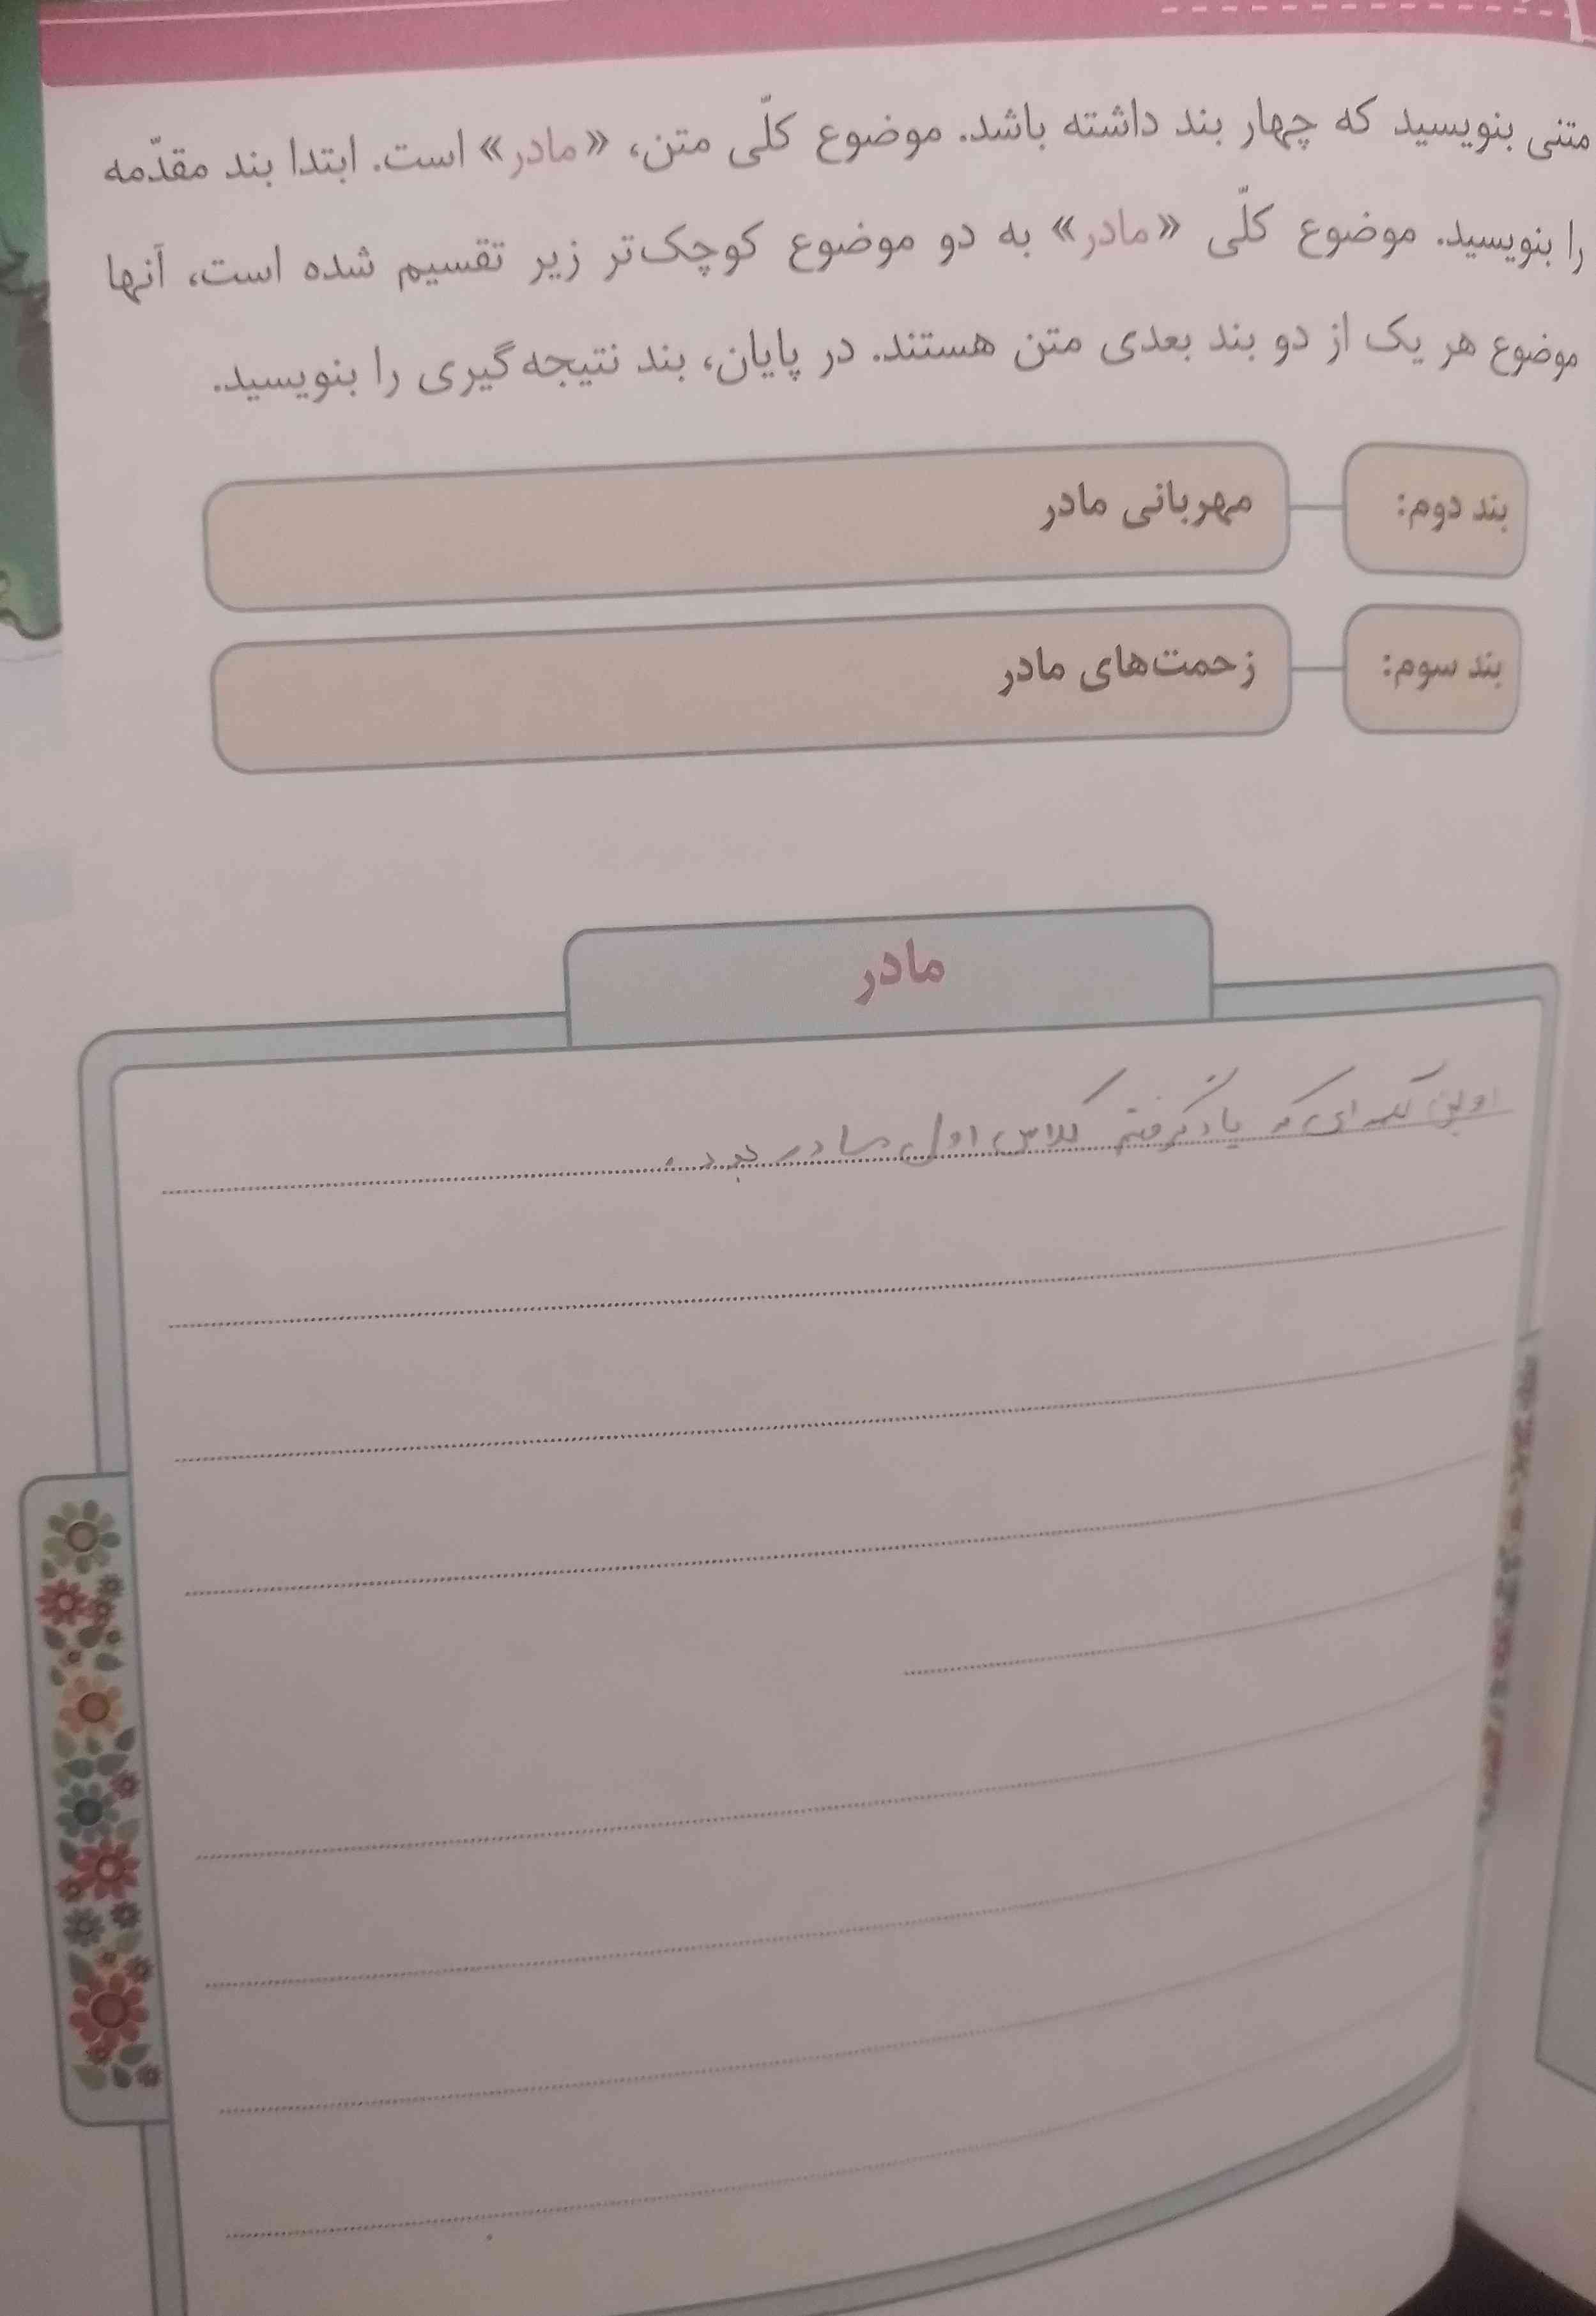 متنی بنویسید که چهار بند داشته باشد. موضوع کلّی متن، «مادر» است. ابتدا بند مقدّمه
را بنویسید. موضوع کلّی «مادر» به دو موضوع کوچک‌تر زیر تقسیم شده است، آنها
موضوع هر یک از دو بند بعدی متن هستند. در پایان، بند نتیجه‌گیری را بنویسید.
بند دوم: مهربانی مادر
بند سوم: زحمت‌های مادر
مادر
اولین کلمه ای که یاد گرفتم کلاس اول مادر بود.